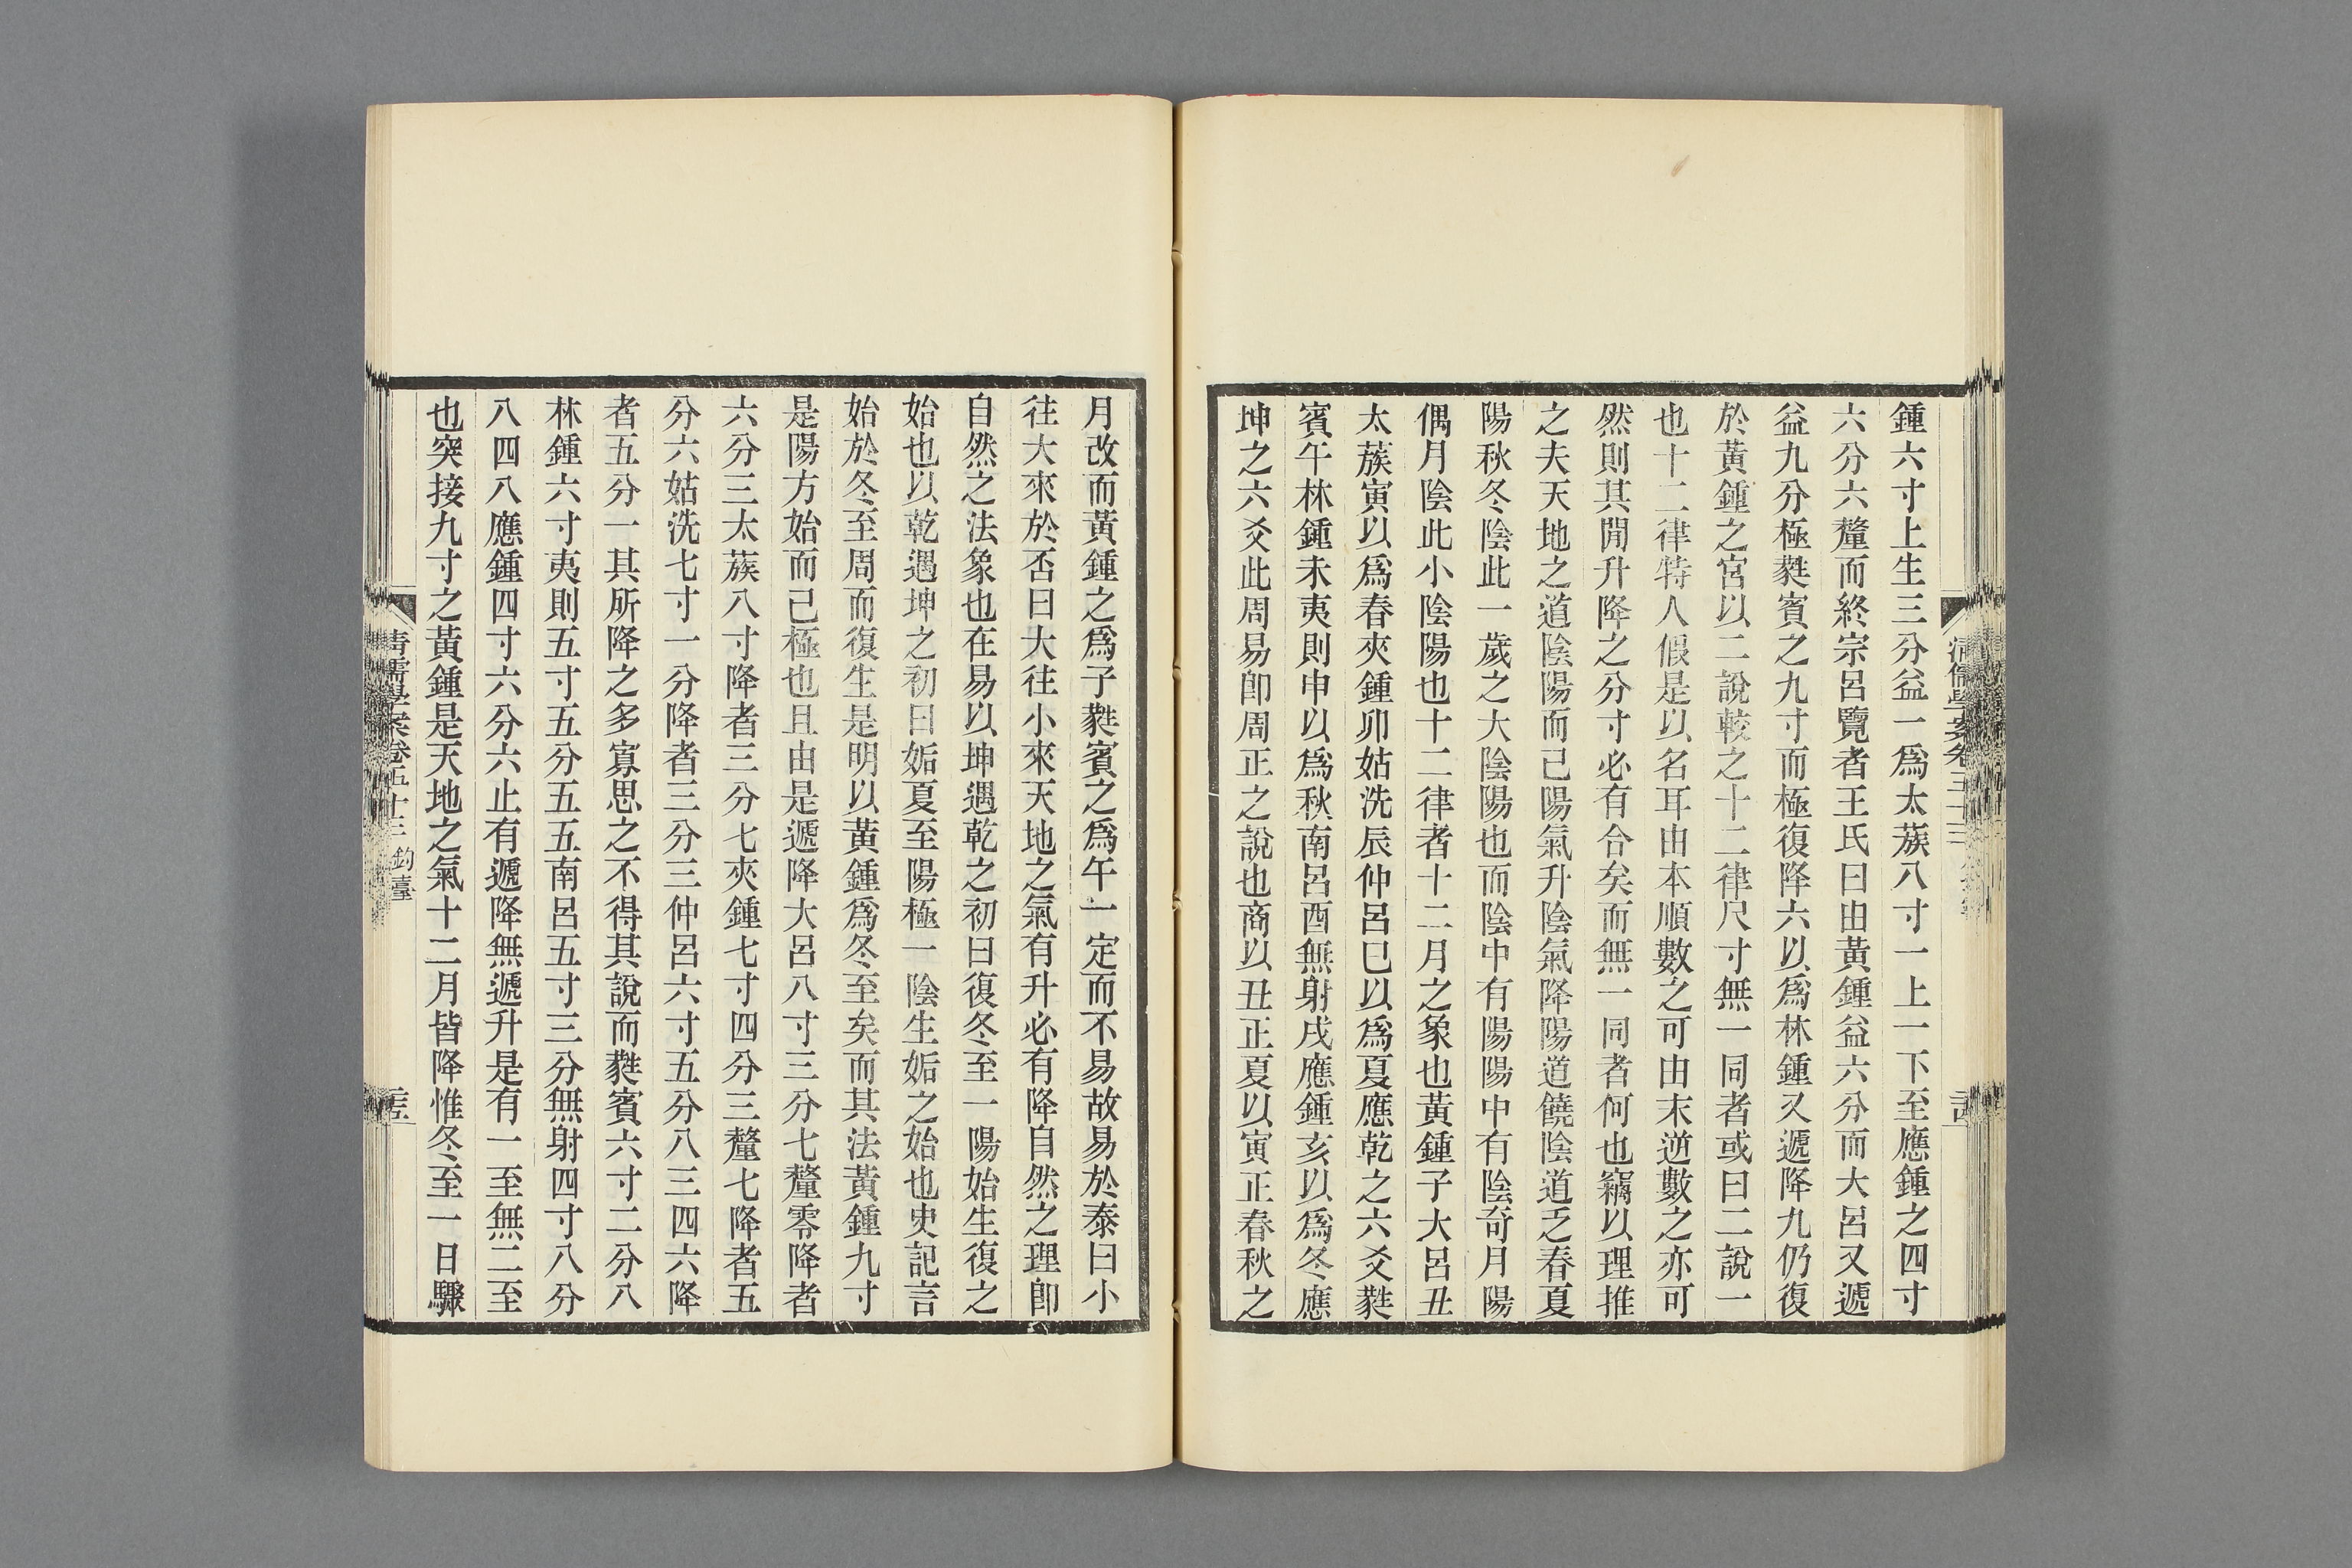 鍾六寸上生三分益一爲太蔟八寸一上一下至應鍾之四寸
六分六釐而終宗呂覽者王氏曰由黃鍾益六分而大呂又遞
益九分極蕤賓之九寸而極復降六以爲林鍾又遞降九仍復
於黃鍾之宮以二說較之十二律尺寸無一同者或曰二說一
也十二律特人假是以名耳由本順數之可由末逆數之亦可
然則其閒升降之分寸必有合矣而無一同者何也竊以理推
之夫天地之道陰陽而已陽氣升陰氣降陽道饒陰道乏春夏
陽秋冬陰此一歲之大陰陽也而陰中有陽陽中有陰奇月陽
偶月陰此小陰陽也十二律者十二月之象也黃鍾子大呂丑
太蔟寅以爲春夾鍾卯姑洗辰仲呂巳以爲夏應乾之六爻蕤
賓午林鍾未夷則申以爲秋南呂酉無射戌應鍾亥以爲冬應
坤之六爻此周易卽周正之說也商以丑正夏以寅正春秋之
月改而黃鍾之爲子蕤賓之爲午一定而不易故易於泰曰小
往大來於否曰大往小來天地之氣有升必有降自然之理卽
自然之法象也在易以坤遇乾之初曰復冬至一陽始生復之
始也以乾遇坤之初曰姤夏至陽極一陰生姤之始也史記言
始於冬至周而復生是明以黃鍾爲冬至矣而其法黃鍾九寸
是陽方始而已極也且由是遞降大呂八寸三分七釐零降者
六分三太蔟八寸降者三分七夾鍾七寸四分三釐七降者五
分六姑洗七寸一分降者三分三仲呂六寸五分八三四六降
者五分一其所降之多寡思之不得其說而蕤賓六寸二分八
林鍾六寸夷則五寸五分五五南呂五寸三分無射四寸八分
八四八應鍾四寸六分六止有遞降無遞升是有一至無二至
也突接九寸之黃鍾是天地之氣十二月皆降惟冬至一日驟
清儒學案卷五十三 鈞臺